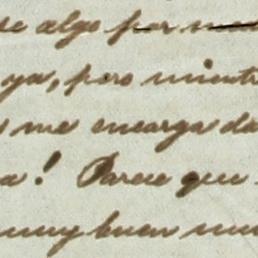 se algo por
ya, pero mientr
me encarga da
a! Parece que
muy buen mu